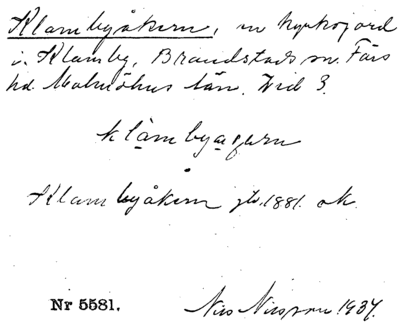 Klambyåkern, en kyrkojord
i Klamby, Brandstads sn. Färs
hd. Malmöhus län. Wid 3.
Klambyåkern 1881. ok.
Nr 5581. Nils Nilsson 1937.